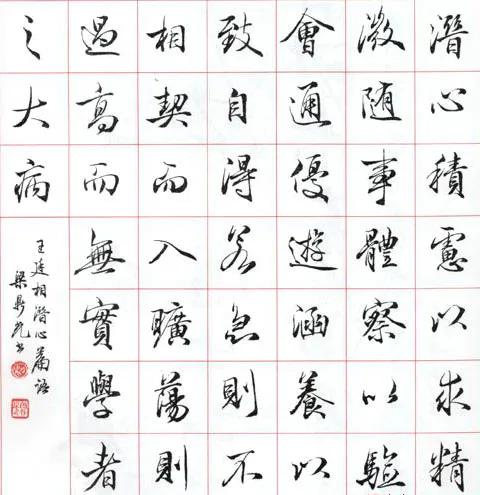 潛心積慮以求精
微随事體察以驗
會通優遊涵養以
致自得若急則不
相契而入曠蕩則
過高而無實學者
之大病
王廷相潛心篇語
梁鼎光书